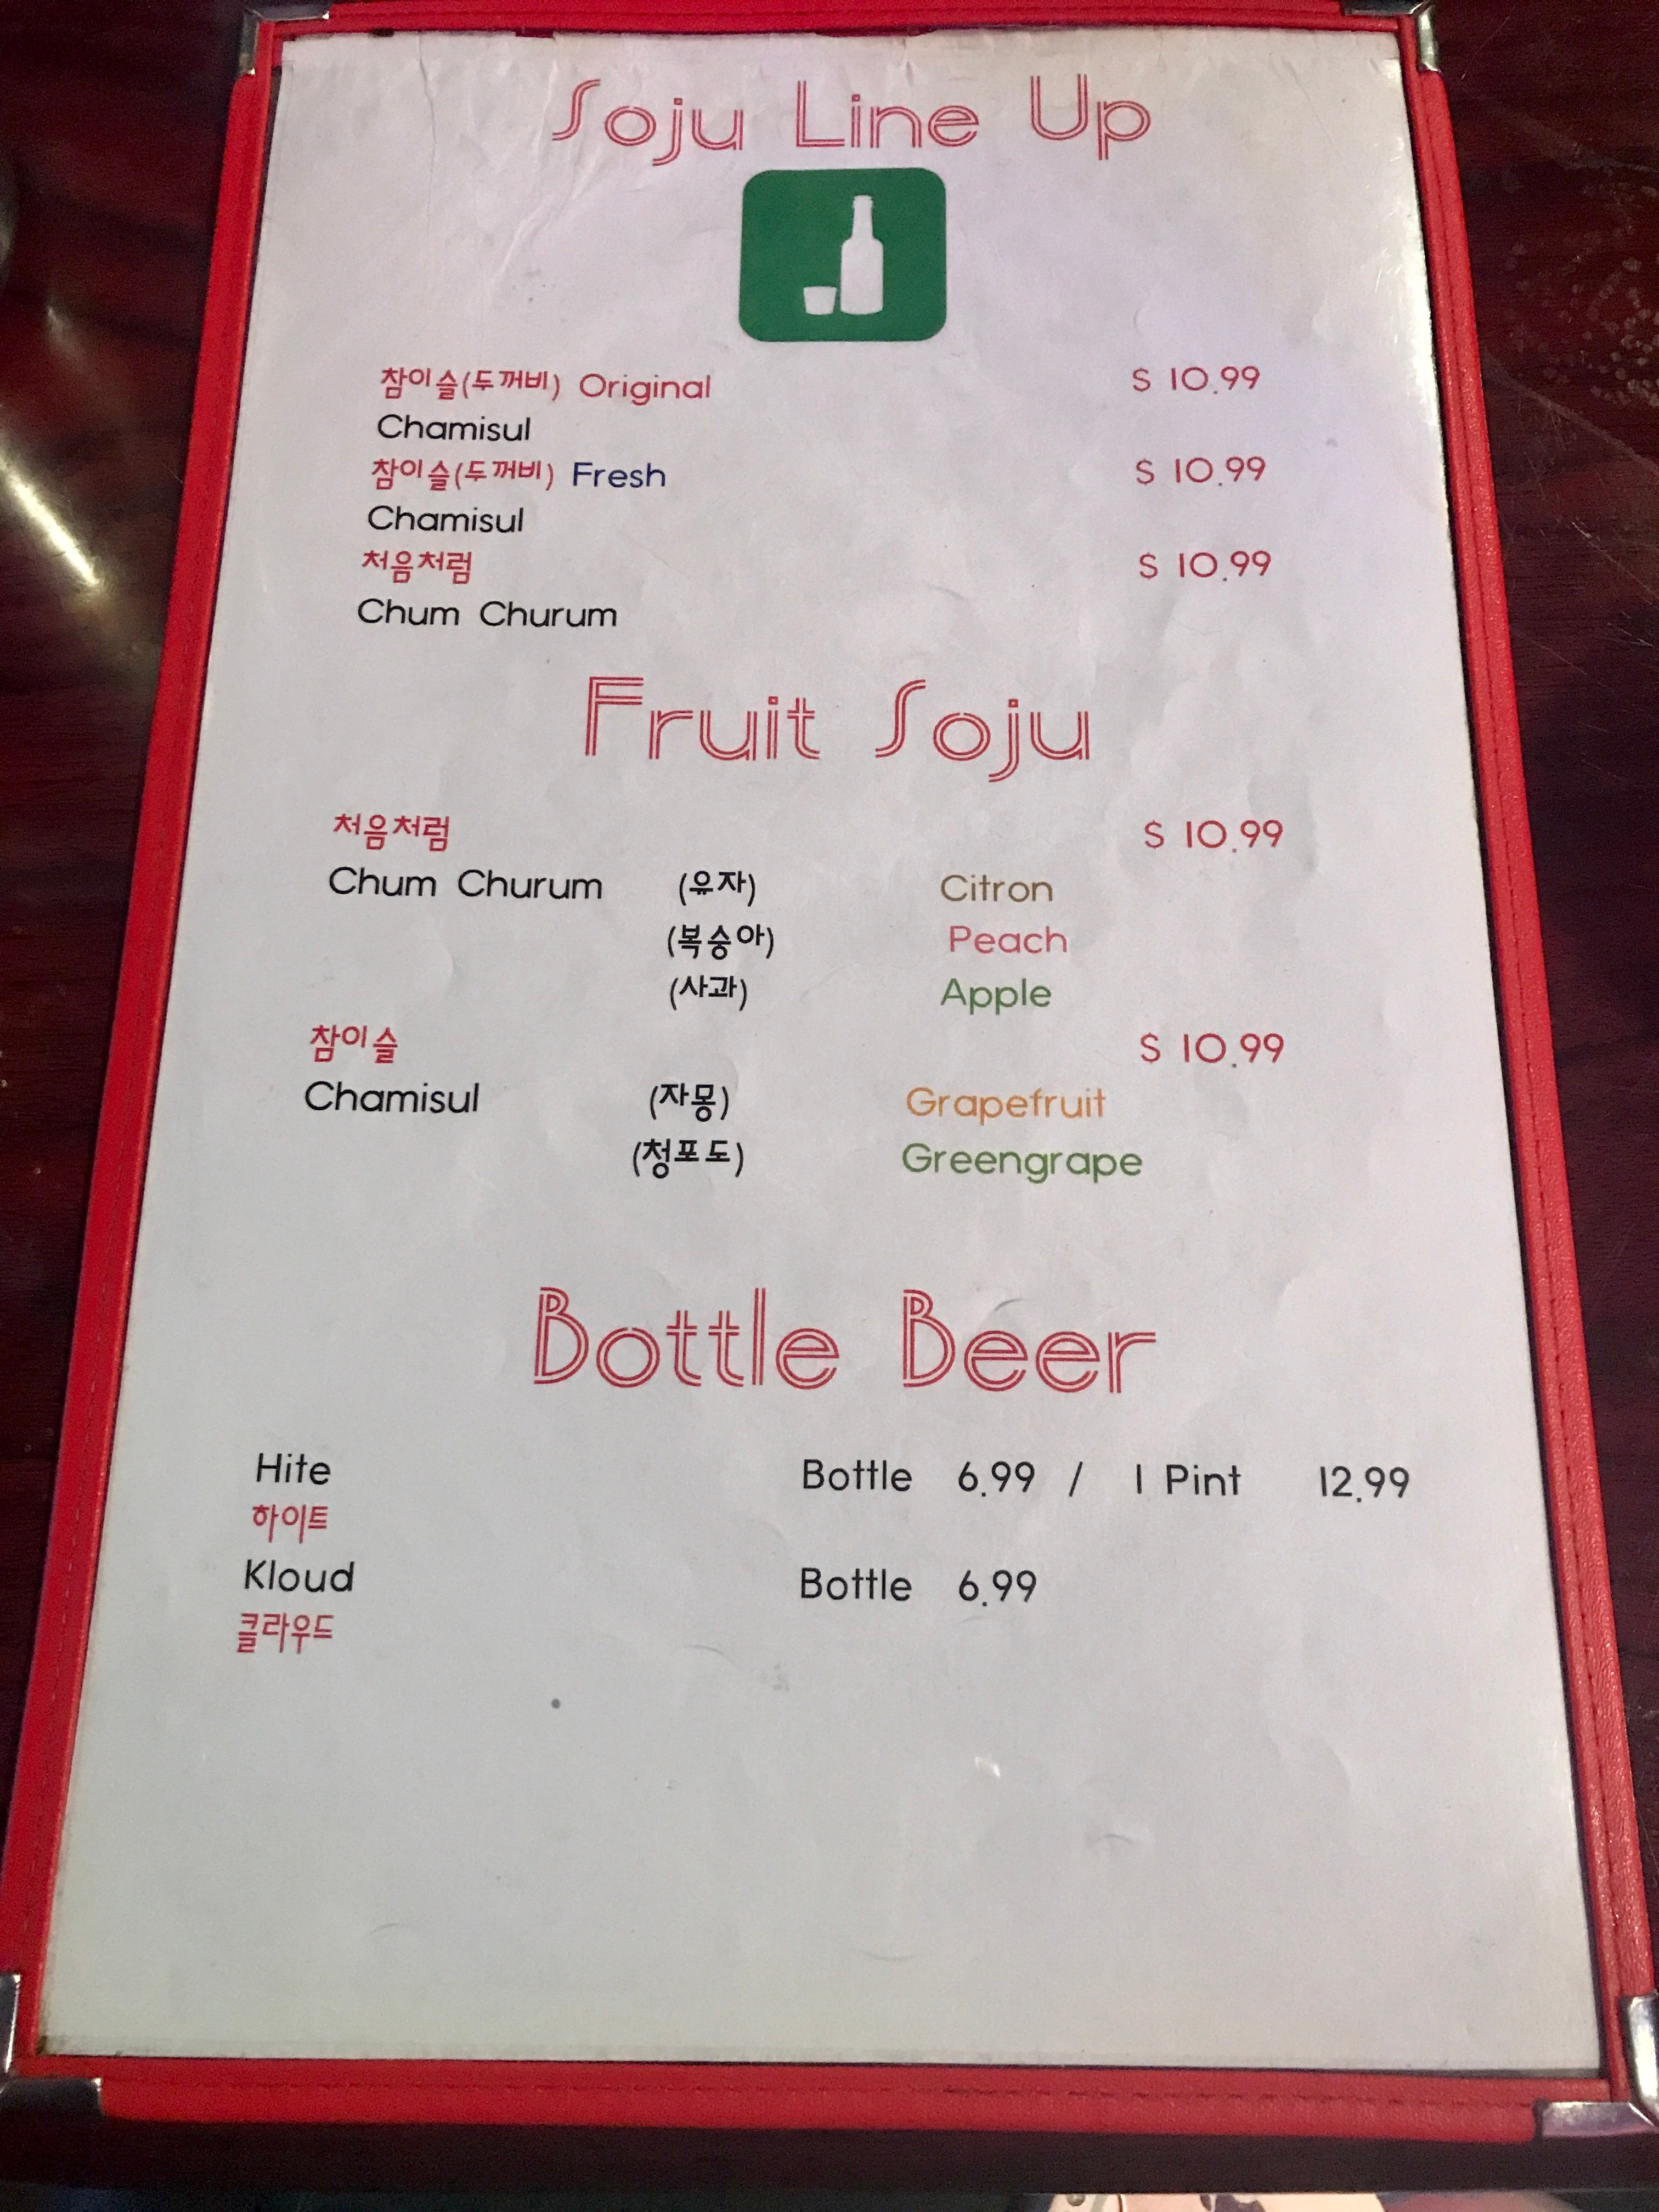 Soju Line Up
참이슬(두꺼비) Original $ 10.99
Chamisul
참이슬(두꺼비) Fresh $ 10.99
Chamisul
처음처럼 $ 10.99
Chum Churum
Fruit Soju
처음처럼 $ 10.99
Chum Churum (유자) Citron
(복숭아) Peach
(사과) Apple
참이슬 $ 10.99
Chamisul (자몽) Grapefruit
(청포도) Greengrape
Bottle Beer
Hite Bottle 6.99 / 1 Pint 12.99
하이트
Kloud Bottle 6.99
클라우드